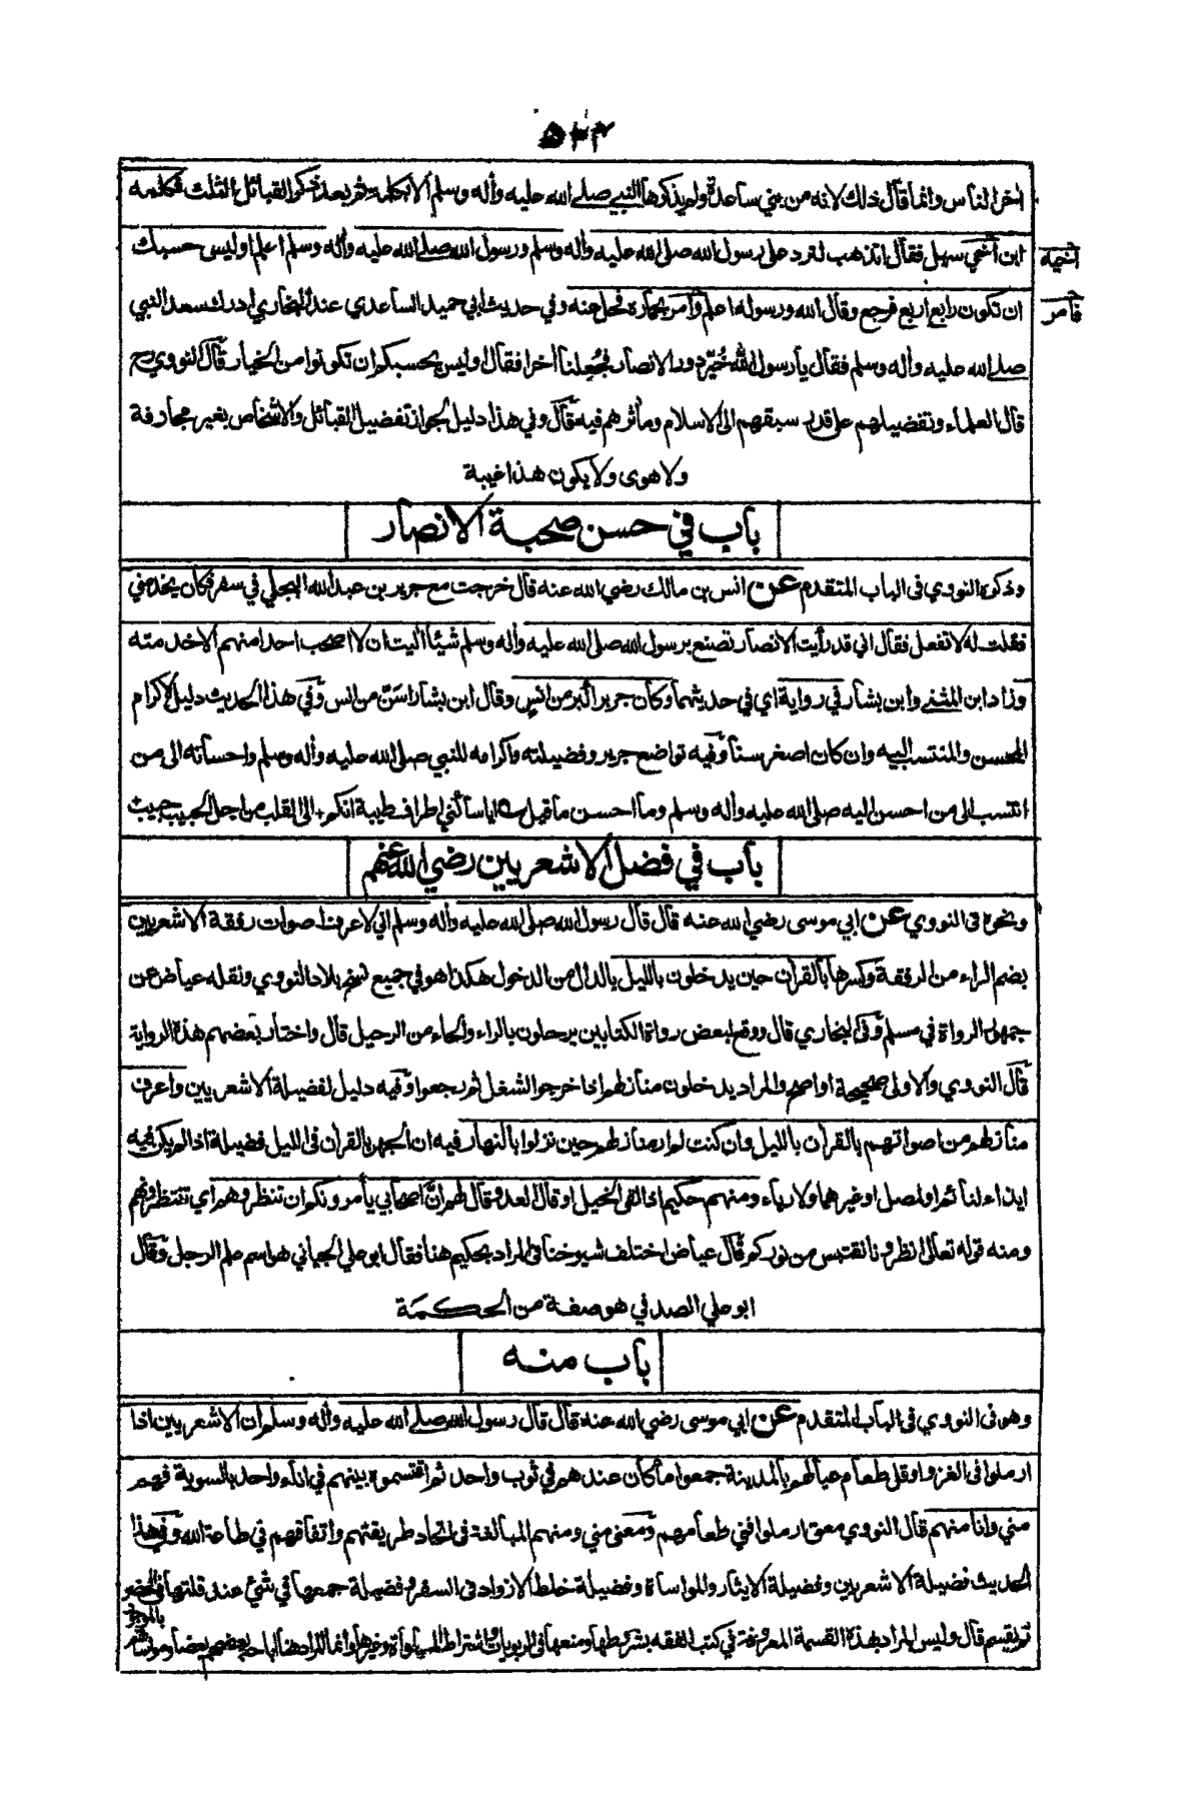 ۵۴۴
أخر الناس وانما قال ذلك لانه من بني ساعدة ولم يذكرها النبي صلى الله عليه وأله وسلم الا بكلمة ثم بعد ذكر القبائل الثلث فكلمه
ابن أخي سهل فقال اتذهب لترد على رسول الله صلى الله عليه وأله وسلم ورسول الله صلى الله عليه وأله وسلم اعلم اوليس حسبك
اخيه
ان تكون رابع اربع فرجع وقال الله ورسوله اعلم وأمر بحماره فحل عنه وفي حديث ابي حميد الساعدي عند البخاري ادرك سعد النبي
فامر
صلى الله عليه وأله وسلم فقال يأرسول الله خُيِّر دور الانصار فجُعِلنا أخرا فقال اوليس بحسبكم ان تكونوا من الخيار قال النووي رح
قال العلماء وتفضيلهم على قدر سبقهم الى الاسلام ومأثرهم فيه قال وفي هذا دليل لجواز تفضيل القبائل والاشخاص بغير مجازفة
ولا هوى ولا يكون هذا غيبة
بأب في حسن صحبة الانصار
وذكره النووي فى الباب المتقدم عن انس بن مالك رضي الله عنه قال خرجت مع جرير بن عبد الله البجلي في سفر فكان يخدمني
فقلت له لا تفعل فقال اني قد رأيت الانصار تصنع برسول الله صلى الله عليه وأله وسلم شيئا أليت ان لا اصحب احدا منهم الا خدمته
وزاد ابن المثنى وابن بشار في رواية اي في حديثهما وكان جرير اكبر من انس وقال ابن بشار اسَنّ من انس وفي هذا الحديث دليل لاكرام
المحسن والمنتسب اليه وان كان اصغر سنا وفيه تواضع جرير وفضيلته واكرامه للنبي صلى الله عليه وأله وسلم واحسانه الى من
انتسب الى من احسن اليه صلى الله عليه وأله وسلم وما احسن ما قيل ايا سأكني اطراف طيبة انكم الى القلب من اجل الحبيب حبيب
بأب في فضل الاشعريين رضي الله عنهم
ونحوه فى النووي عن ابي موسى رضي الله عنه قال قال رسول الله صلى الله عليه وأله وسلم اني لاعرف اصوات رفقة الاشعريين
بضم الراء من الرفقة وكسرها بالقرأن حين يدخلون بالليل بالدال من الدخول هكذا هو في جميع نسخ بلاد النووي ونقله عياض عن
جمهور الرواة في مسلم وفى البخاري قال ووقع لبعض رواة الكتابين يرحلون بالراء والحاء من الرحيل قال واختار بعضهم هذه الرواية
قال النووي والاولى صحيحة او اصح والمراد يدخلون منازلهم اذا خرجوا الشغل ثم رجعوا وفيه دليل لفضيلة الاشعريين واعرف
منأزلهم من اصواتهم بالقرأن بالليل وان كنت لم ار منازلهم حين نزلوا بالنهار فيه ان الجهر بالقرأن فى الليل فضيلة اذا لم يكن فيه
ايذاء لنائم او لمصل او غيرهما ولا رياء ومنهم حكيم اذا لقى الخيل او قال العدو قال لهم ان اصحابي يأمرونكم ان تنظروهم اي تنتظرونهم
ومنه قوله تعالى انظرونا نقتبس من نوركم قال عياض اختلف شيوخنا فى المراد بحكيم هنا فقال ابو علي الجياني هو اسم علم لرجل وقال
ابو علي الصدفي هو صفة من الحكمة
بأب منه
وهو فى النووي فى الباب المتقدم عن ابي موسى رضي الله عنه قال قال رسول الله صلى الله عليه وأله وسلم ان الاشعريين اذا
ارملوا فى الغزو او قل طعام عيالهم بالمدينة جمعوا ما كان عندهم في ثوب واحد ثم اقتسموه بينهم في اناء واحد بالسوية فهم
مني وانا منهم قال النووي معنى ارملوا فني طعامهم ومعنى مني ومنهم المبالغة فى اتحاد طريقتهم واتفاقهم في طاعة الله وفي هذا
الحديث فضيلة الاشعريين وفضيلة الايثار والمواساة وفضيلة خلط الازواد فى السفر وفضيلة جمعها في شئ عند قلتها فى الحضر
ثم يقسم قال وليس المراد بهذه القسمة المعروفة في كتب الفقه بشرطها ومنعها فى الربويات واشتراط المساواة وغيرها وانما المراد هنا اباحة بعضهم بعضا ومواساتهم
بالموجود